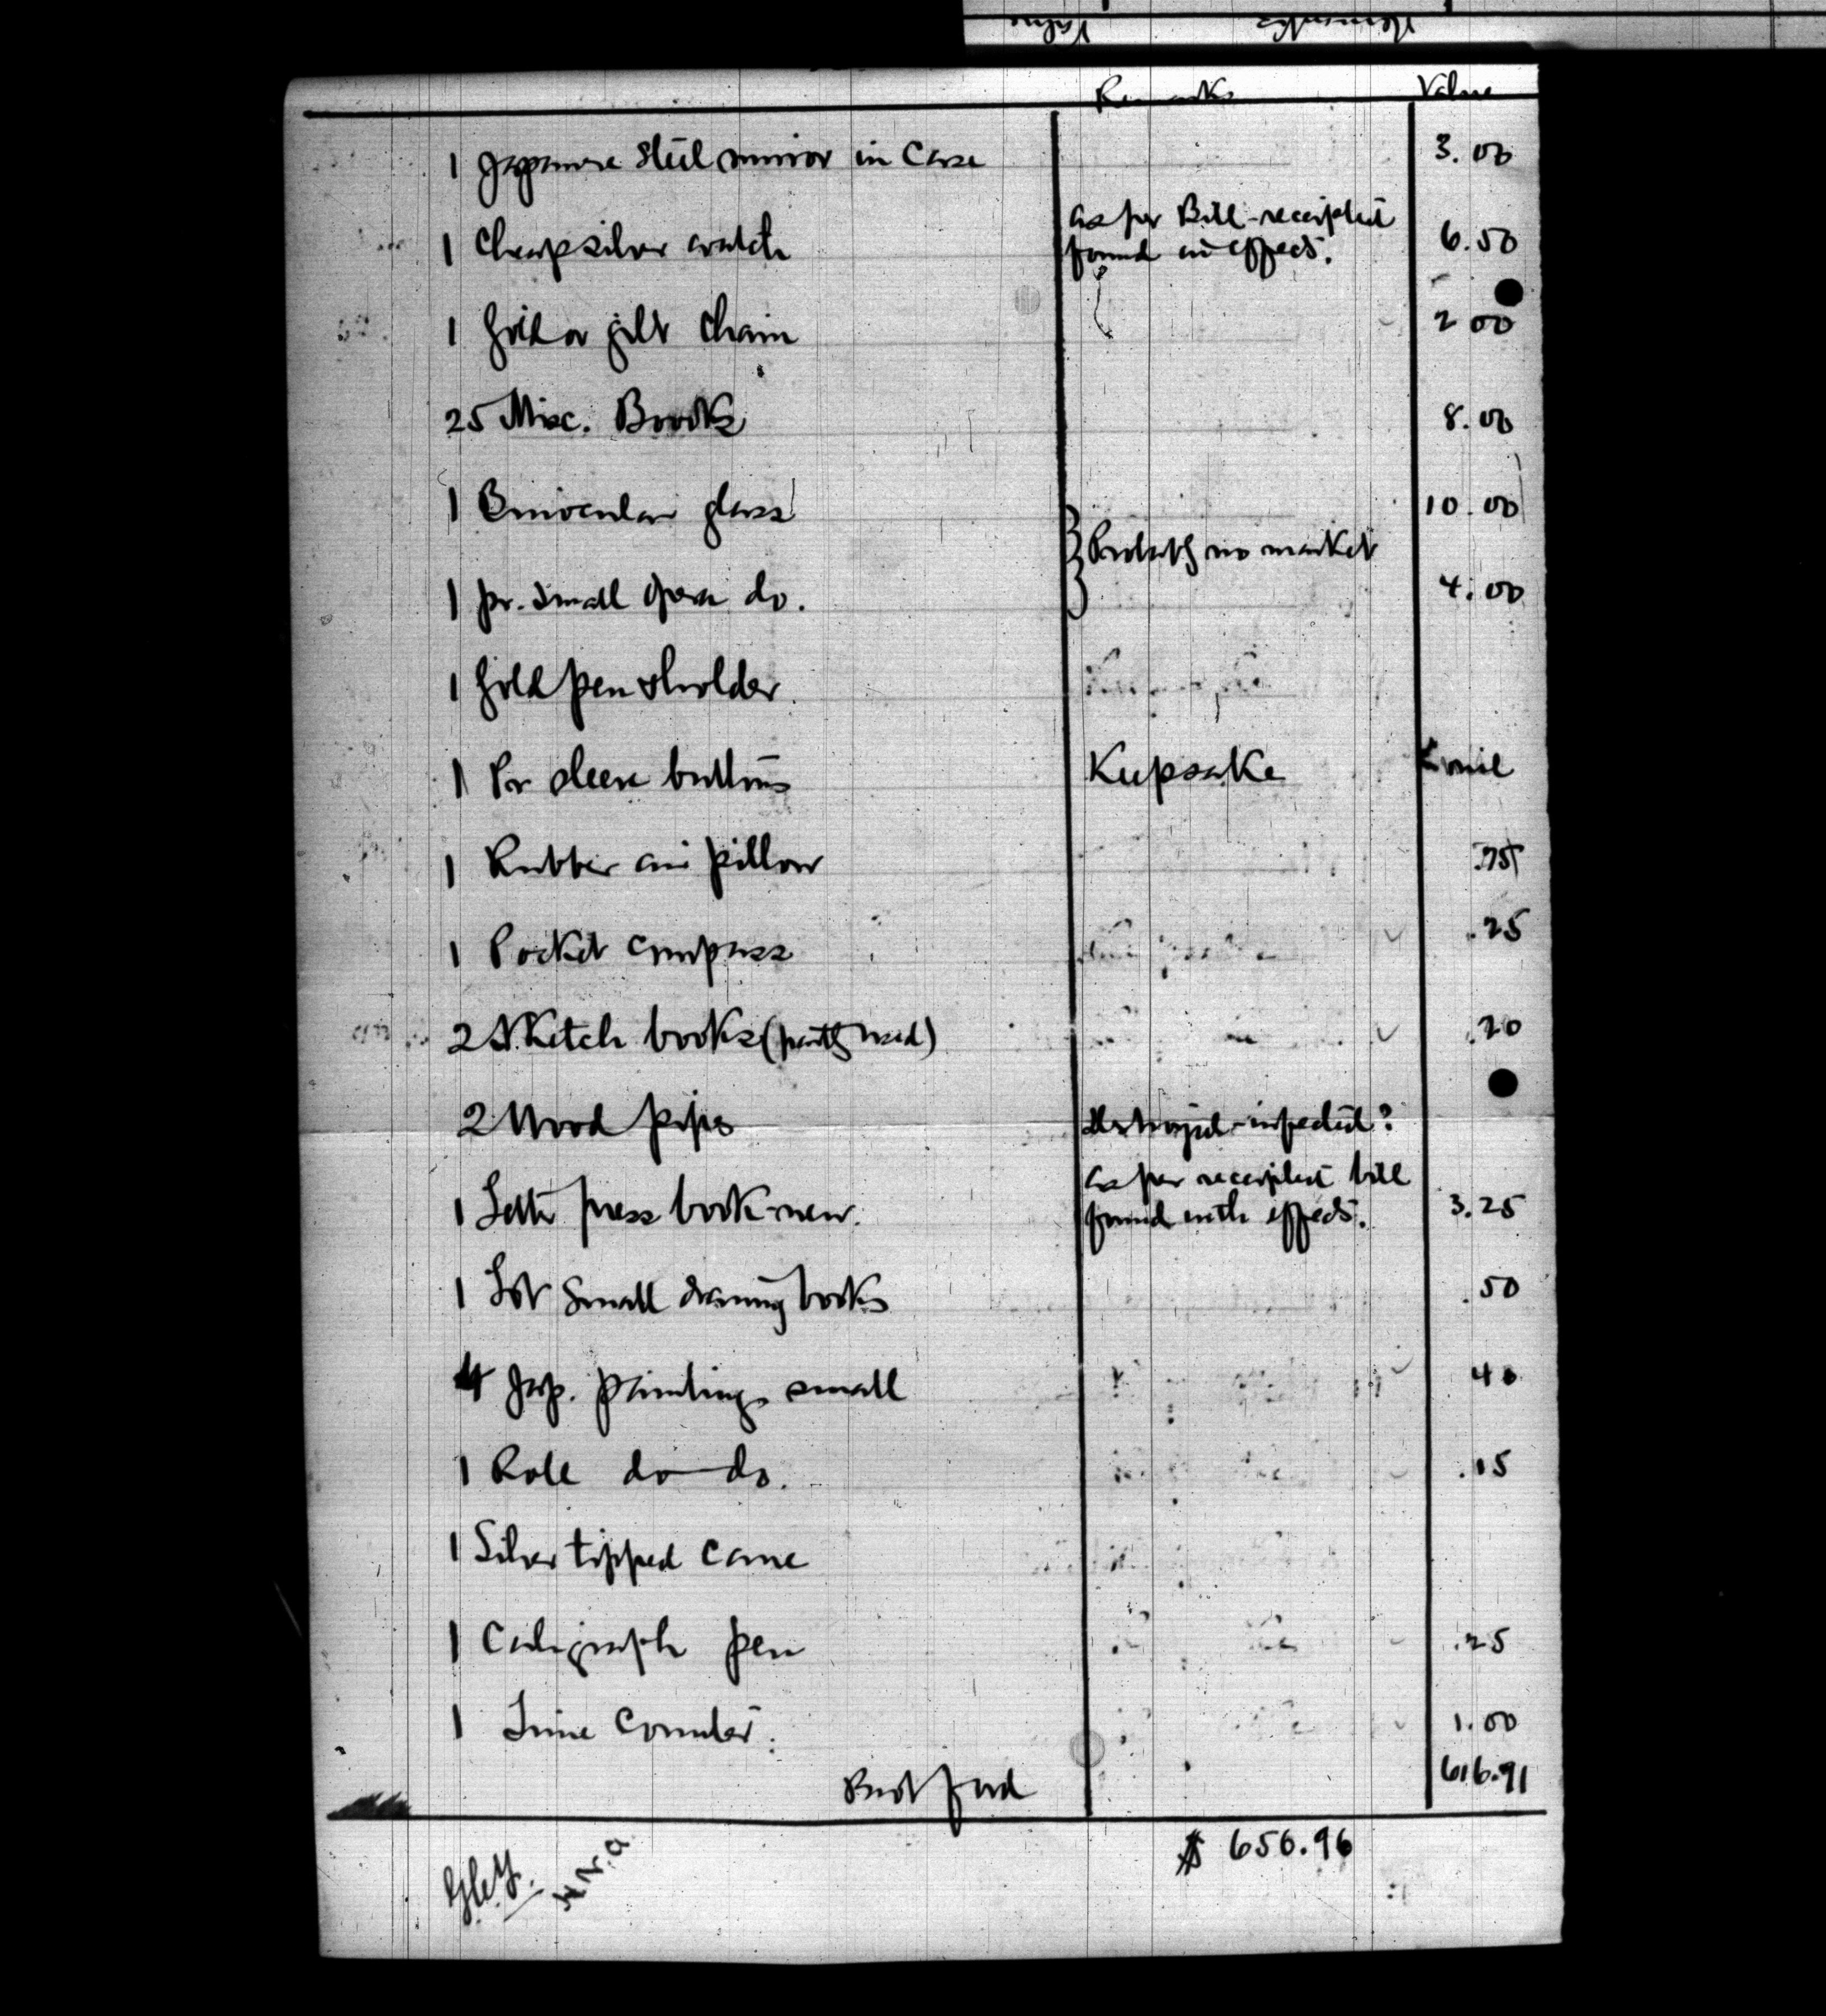 Value Remarks
Remarks Value
1 Japanese Steel mirror in Case 3.00
1 Cheap silver watch as per Bill-receipted found in effects. 6.50
1 Gold or gilt chain 2 00
25 Misc. Books 8.00
1 Binocular glass 10.00
Probably no market
1 pr. small Opera do. 4.00
1 Gold pen & holder.
1 Pr sleeve buttons Keepsake
1 Rubber air pillow .75
1 Pocket compass .25
2 Sketch books (partly used) .20
2 Wood pipes Destroyed-infected?
1 Letter press book-new. as per receipted bill found with effects. 3.25
1 Lot Small drawing books .50
4 Jap. paintings small 40
1 Roll do do. .15
1 Silver tipped cane
1 Caligraph pen .25
1 Time Counter. 1.00
Brot ford 616.91
$ 656.96